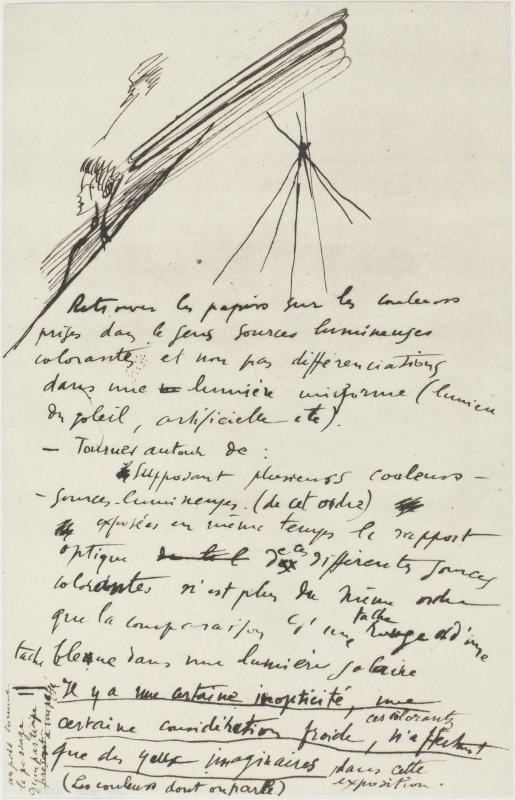 Retrouver les papiers sur les couleurs
prises dans le sens sources lumineuses
colorantes et non pas différenciations
dans une lumière uniforme (lumière
du soleil, artificielle etc).
— Tourner autour de :
Supposant plusieurs couleurs —
- sources-lumineuses. (de cet ordre)
exposées en même temps le rapport
optique de ces différentes sources
colorantes n'est plus du même ordre
que la comparaison d'une tache rouge et d'une
tache bleue dans une lumière solaire
Il y a une certaine inopticité, une
certaine considération froide, ces colorants n'affectant
que des yeux imaginaires dans cette
exposition.
(Les couleurs dont on parle)
un peu comme
le passage
d'un participe
présent à un passé